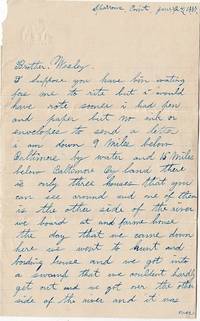 Sparrows Point
Brother Wesley.
I suppose you have bin wating
for me to rite but i would
have rote sooner i had pen
and paper but no ink or
envelopes to send a letter
i am down 9 Miles below
Baltimore by water and 15 Miles
below Baltimore by land there
is only three houses that you
can see around and one of them
is the other side of the river
we board at and farme house
the day that we came down
here we went to hunt and
bording house and we got into
a swamp that we couldent hardly
get out and we got over the other
side of the river and it was